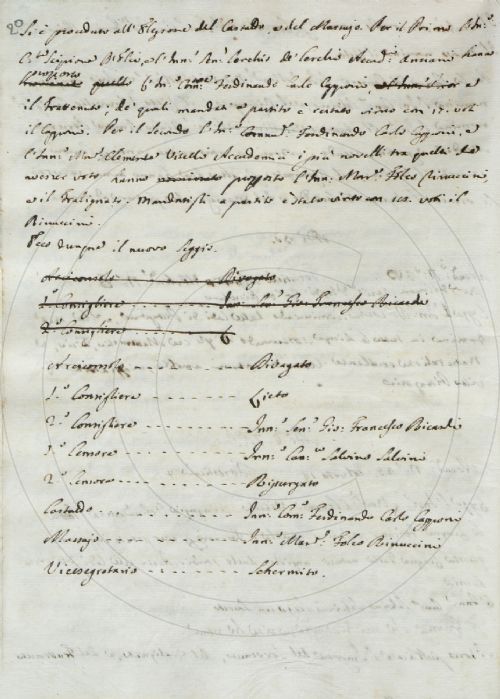 Si è proceduto all'Elezione del Castaldo, e del Massajo. Per il Primo l'Inn.º
Scipione e l'Inn.º Cerchio de' Cerchi Accad.ci Anziani hanno
proposto
nominato quello l'Inn.º Ferdinando Carlo Capponi e
il Trattenuto; de' quali mandati a partito è restato vinto con voti
il Capponi. Per il Secondo l'Inn.º Ferdinando Carlo Capponi, e
l'Inn.º Mar.e Clemente Vitelli Accademici i più novelli tra quelli che
voto hanno nominato proposto l'Inn.º Mar.e Folco Rinuccini,
e il Tralignato. Mandatisi a partito è stato vinto con voti il
Rinuccini.
Ecco dunque il nuovo Seggio.
Arciconsolo Rivagato
1.º Consigliere Inn.º Sen.e Gio: Francesco Ricardi
2.º Consigliere
Arciconsolo - - - - - - Rivagato
1.º Consigliere - - - - - - Lieto
2.º Consigliere - - - - - - Inn.º Sen.e Gio: Francesco Ricardi
1.º Censore - - - - - - Inn.º Can.co Salvino Salvini
2.º Censore - - - - - - Ripurgato
Castaldo - - - - - - Inn.º Ferdinando Carlo Capponi
Massajo - - - - - - Inn.º Mar.e Folco Rinuccini
Vicesegretario - - - - - - Schermito.